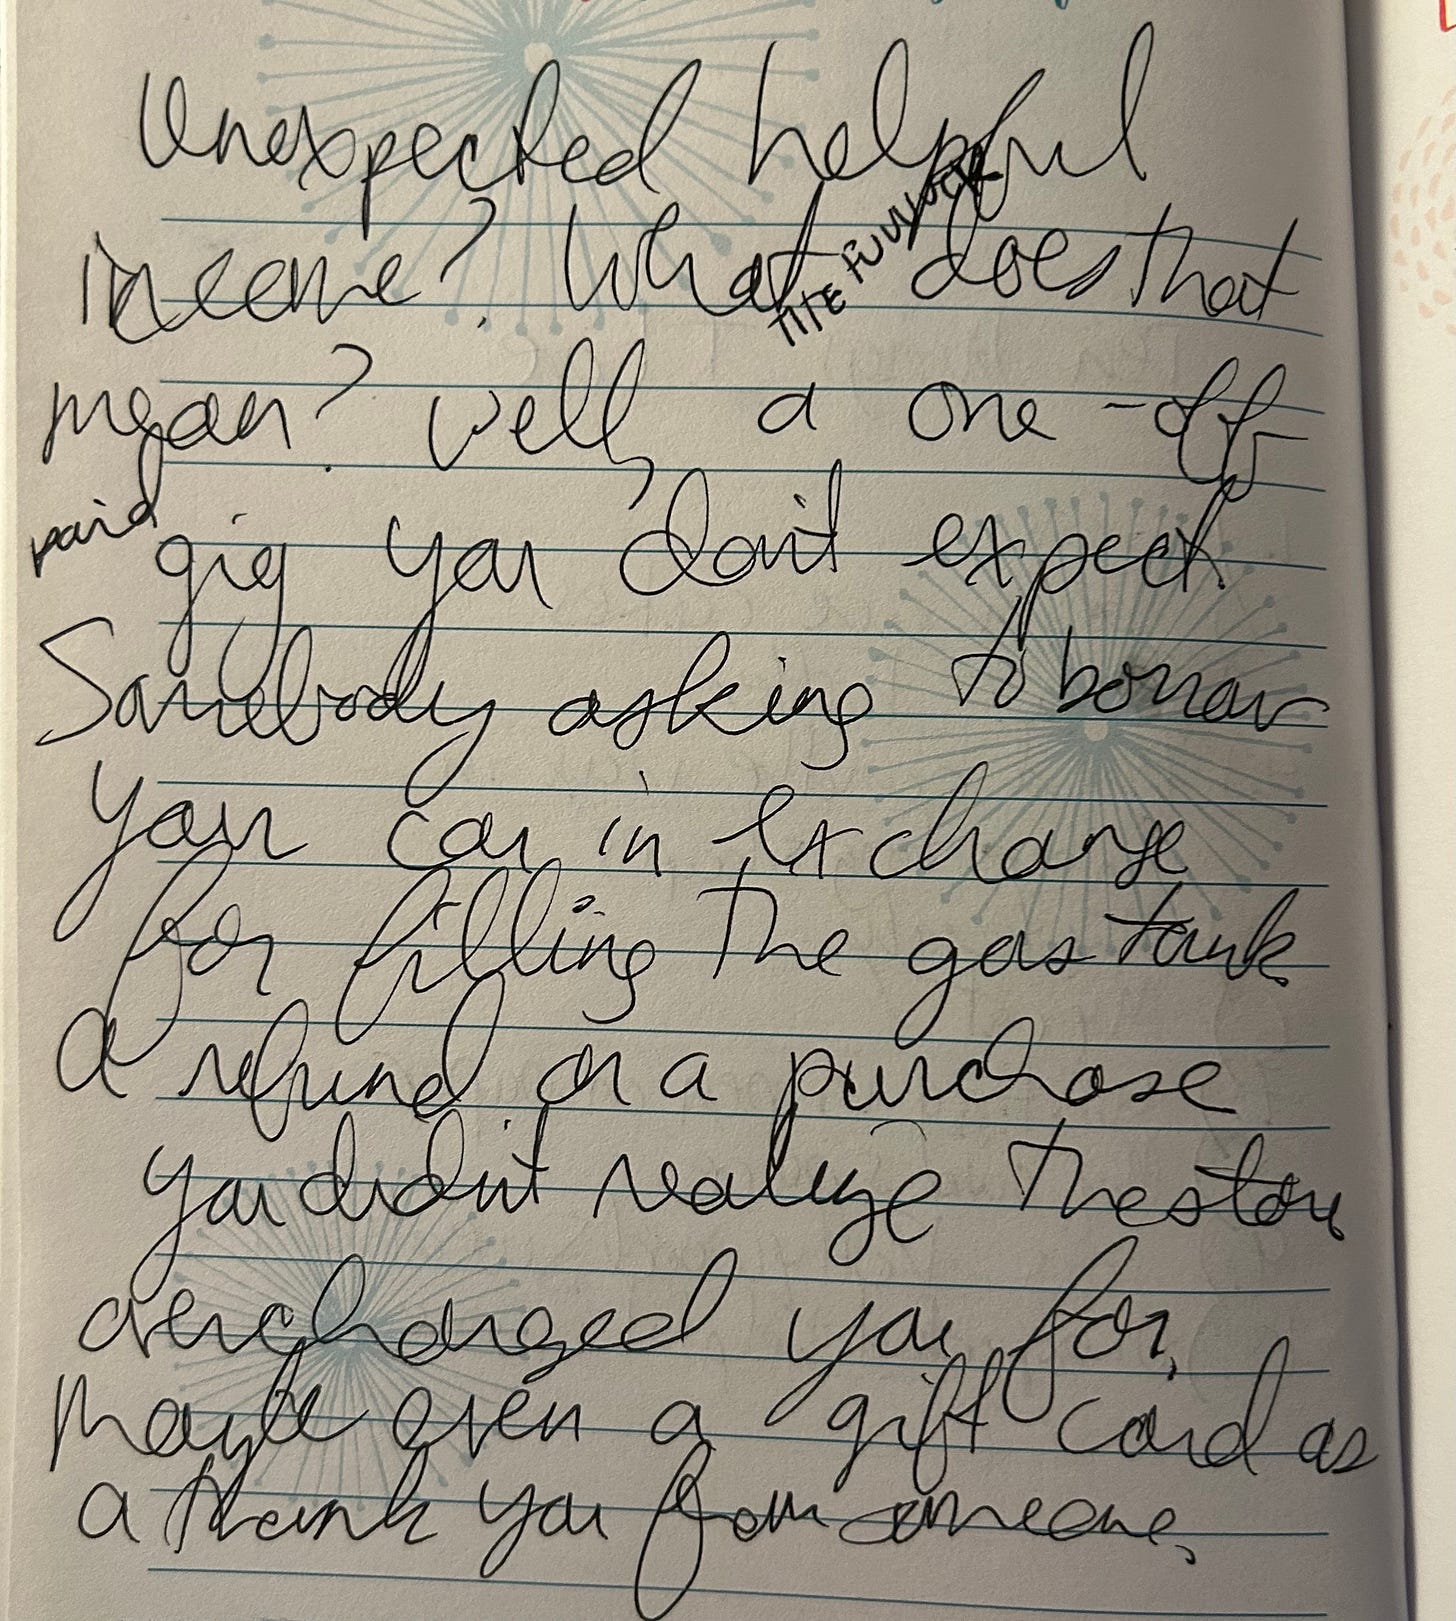 Unexpected helpful
income? What does that
mean? Well, a one-off
paid gig you don't expect
Somebody asking to borrow
your car in exchange
for filling the gas tank.
A refund on a purchase
you didn't realize the store
overcharged you for,
Maybe even a gift card as
a thank you from someone.